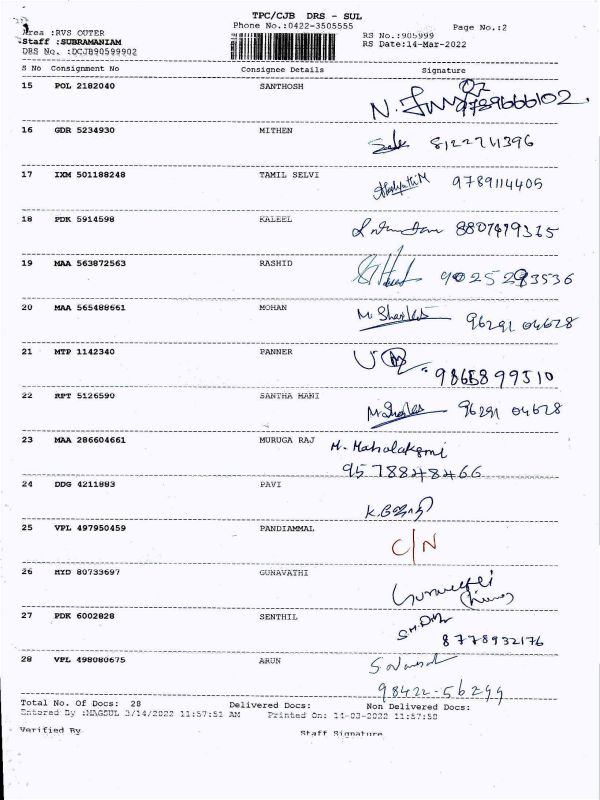 TPC/CJB DRS - SUL
Phone No.:0422-3505555 Page No.:2
Area :RVS OUTER RS No.:905999
Staff :SUBRAMANIAM RS Date:14-Mar-2022
DRS No. :DCJB90599902
S No Consignment No Consignee Details Signature
15 POL 2182040 SANTHOSH
16 GDR 5234930 MITHEN
17 IXM 501188248 TAMIL SELVI
9789114405
18 PDK 5914598 KALEEL
19 MAA 563872563 RASHID
20 MAA 565488661 MOHAN
96291 04628
21 MTP 1142340 PANNER
22 RPT 5126590 SANTHA MANI
96291 04628
23 MAA 286604661 MURUGA RAJ
24 DDG 4211883 PAVI
25 VPL 497950459 PANDIAMMAL
C/N
26 HYD 80733697 GUNAVATHI
27 PDK 6002828 SENTHIL
8778932176
28 VPL 498080675 ARUN
98422-56299
Total No. Of Docs: 28 Delivered Docs: Non Delivered Docs:
Entered By :MAGSUL 3/14/2022 11:57:51 AM Printed On: 14-03-2022 11:57:58
Verified By Staff Signature